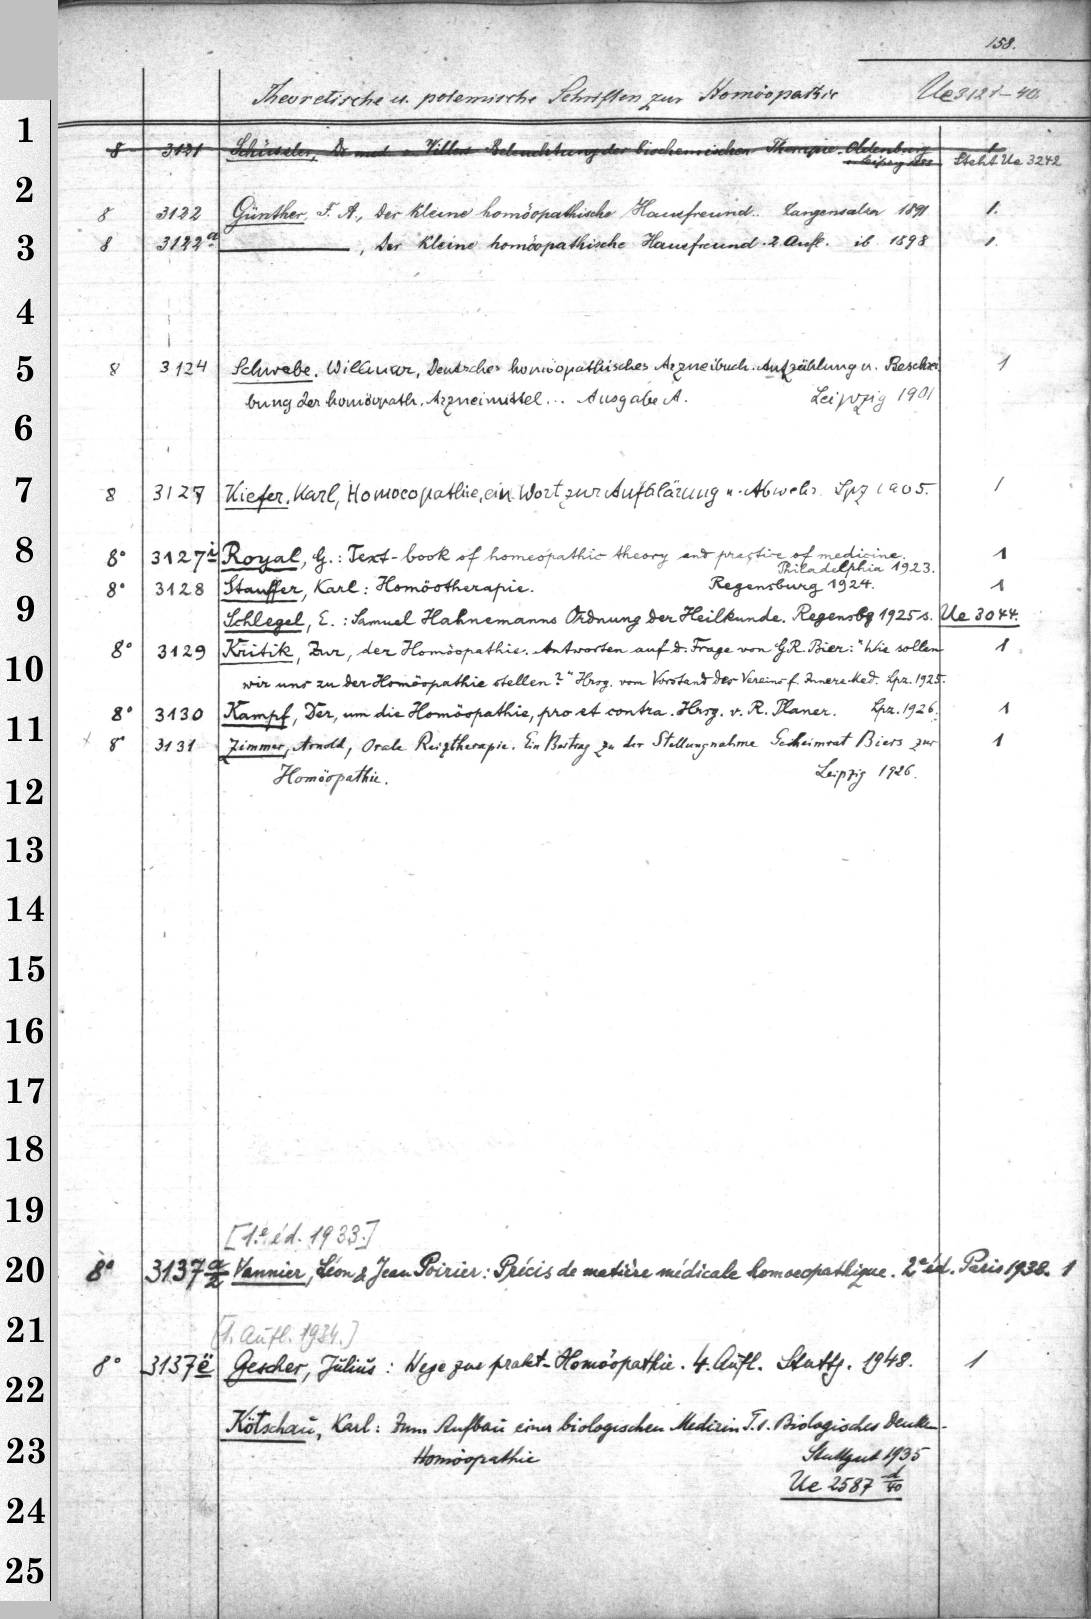 158.
Theoretische u. polemische Schriften zur Homöopathie Ue 3121-40
1
8 3121 Schüssler, Dr med v. Villers Beleuchtung der biochemischen Therapie. Oldenburg 1
u. Leipzig Steht Ue 3242
2
8 3122 Günther, F. A., Der kleine homöopathische Hausfreund.. Langensalza 1891 1.
3
8 3122a ———, Der kleine homöopathische Hausfreund. 2. Aufl. ib 1898 1.
4
5
8 3124 Schwabe, Willmar, Deutsches homöopathisches Arzneibuch. Aufzählung u. Beschrei 1
bung der homöopath. Arzneimittel... Ausgabe A. Leipzig 1901
6
7
8 3127 Kiefer, Karl, Homoeopathie, ein Wort zur Aufklärung u. Abwehr. Lpz 1905. 1
8
8° 3127i Royal, G.: Text-book of homeopathic theory and practice of medicine. 1
Philadelphia 1923.
8° 3128 Stauffer, Karl: Homöotherapie. Regensburg 1924. 1
9
Schlegel, E.: Samuel Hahnemanns Ordnung der Heilkunde. Regensbg 1925 s. Ue 3044.
8° 3129 Kritik, Zur, der Homöopathie. Antworten auf d. Frage von G.R. Bier: "Wie sollen 1
10
wir uns zu der Homöopathie stellen?" Hrsg. vom Vorstand des Vereins f. Innere Med. Lpz. 1925.
8° 3130 Kampf, Der, um die Homöopathie, pro et contra. Hrsg. v. R. Planer. Lpz. 1926. 1
11
8° 3131 Zimmer, Arnold, Orale Reiztherapie. Ein Beitrag zu der Stellungnahme Geheimrat Biers zur 1
Homöopathie. Leipzig 1926.
12
13
14
15
16
17
18
19
[1.e éd. 1933.]
20
8° 3137 a/2 Vannier, Léon & Jean Poirier: Précis de matière médicale homoeopathique. 2e éd. Paris 1938. 1
21
[1. Aufl. 1934.]
8° 3137ë Gescher, Julius: Wege zur prakt. Homöopathie. 4. Aufl. Stuttg. 1948. 1
22
Kötschau, Karl: Zum Aufbau einer biologischen Medizin T. 1. Biologisches Denken -
23
Homöopathie Stuttgart 1935
Ue 2587 d/40
24
25